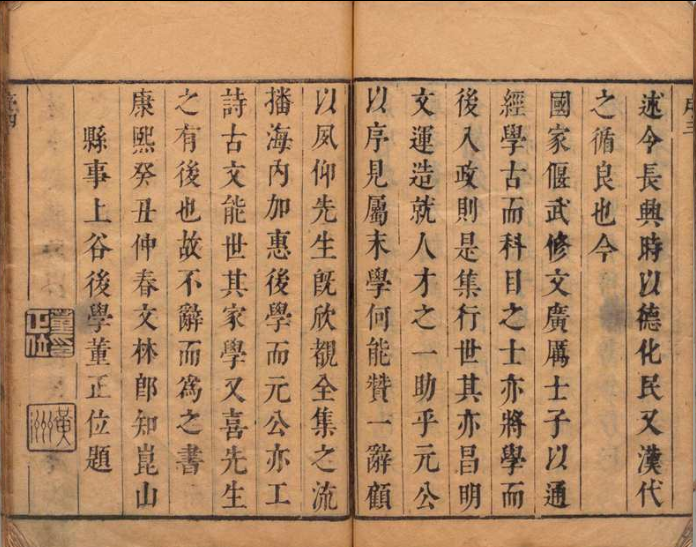 述今長興時以德化民又漢代
之循良也今
國家偃武修文廣厲士子以通
經學古而科目之士亦將學而
後入政則是集行世其亦昌明
文運造就人才之一助乎元公
以序見屬末學何能贊一辭顧
以夙仰先生旣欣覩全集之流
播海內加惠後學而元公亦工
詩古文能世其家學又喜先生
之有後也故不辭而爲之書
康熙癸丑仲春文林郎知崑山
縣事上谷後學董正位題